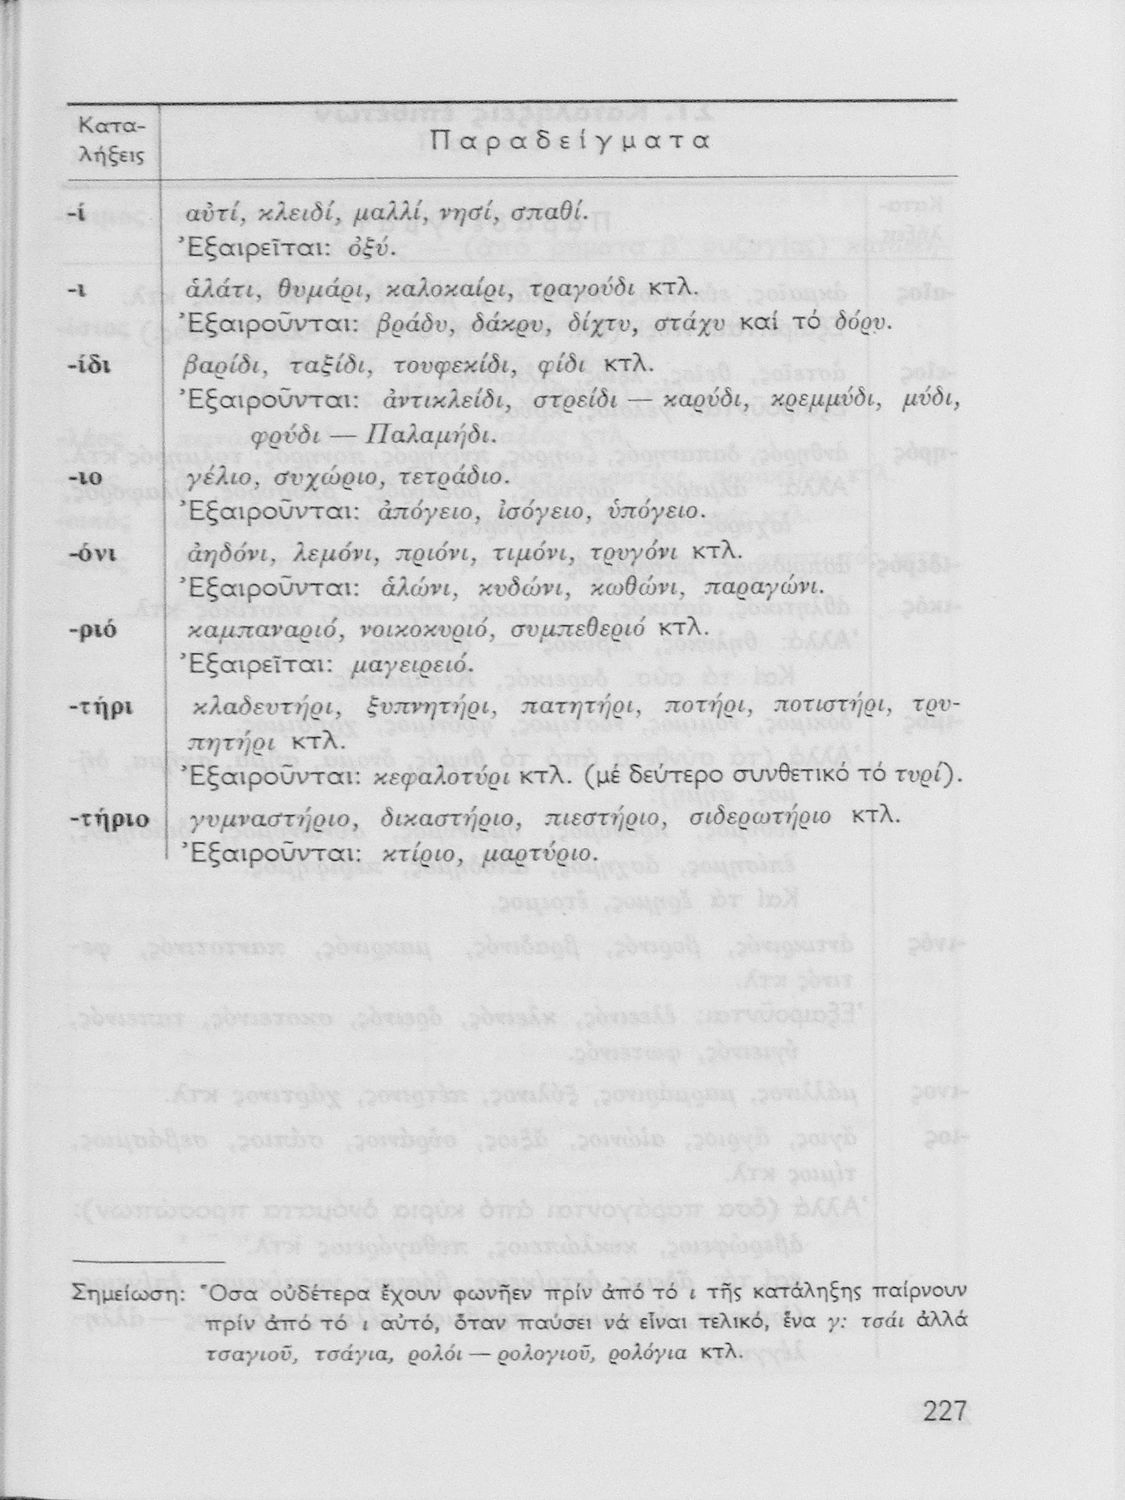 Κατα-
λήξεις
Παραδείγματα
-ί αὐτί, κλειδί, μαλλί, νησί, σπαθί.
Ἐξαιρεῖται: ὀξύ.
-ι ἁλάτι, θυμάρι, καλοκαίρι, τραγούδι κτλ.
Ἐξαιροῦνται: βράδυ, δάκρυ, δίχτυ, στάχυ καί τό δόρυ.
-ίδι βαρίδι, ταξίδι, τουφεκίδι, φίδι κτλ.
Ἐξαιροῦνται: ἀντικλείδι, στρείδι — καρύδι, κρεμμύδι, μύδι,
φρύδι — Παλαμήδι.
-ιο γέλιο, συχώριο, τετράδιο.
Ἐξαιροῦνται: ἀπόγειο, ἰσόγειο, ὑπόγειο.
-όνι ἀηδόνι, λεμόνι, πριόνι, τιμόνι, τρυγόνι κτλ.
Ἐξαιροῦνται: ἁλώνι, κυδώνι, κωθώνι, παραγώνι.
-ριό καμπαναριό, νοικοκυριό, συμπεθεριό κτλ.
Ἐξαιρεῖται: μαγειρειό.
-τήρι κλαδευτήρι, ξυπνητήρι, πατητήρι, ποτήρι, ποτιστήρι, τρυ-
πητήρι κτλ.
Ἐξαιροῦνται: κεφαλοτύρι κτλ. (μέ δεύτερο συνθετικό τό τυρί).
-τήριο γυμναστήριο, δικαστήριο, πιεστήριο, σιδερωτήριο κτλ.
Ἐξαιροῦνται: κτίριο, μαρτύριο.
Σημείωση: Ὅσα οὐδέτερα ἔχουν φωνῆεν πρίν ἀπό τό ι τῆς κατάληξης παίρνουν
πρίν ἀπό τό ι αὐτό, ὅταν παύσει νά εἶναι τελικό, ἕνα γ: τσάι ἀλλά
τσαγιοῦ, τσάγια, ρολόι — ρολογιοῦ, ρολόγια κτλ.
227